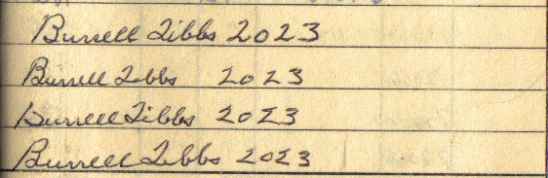 Burrell Tibbs 2023
Burrell Tibbs 2023
Burrell Tibbs 2023
Burrell Tibbs 2023